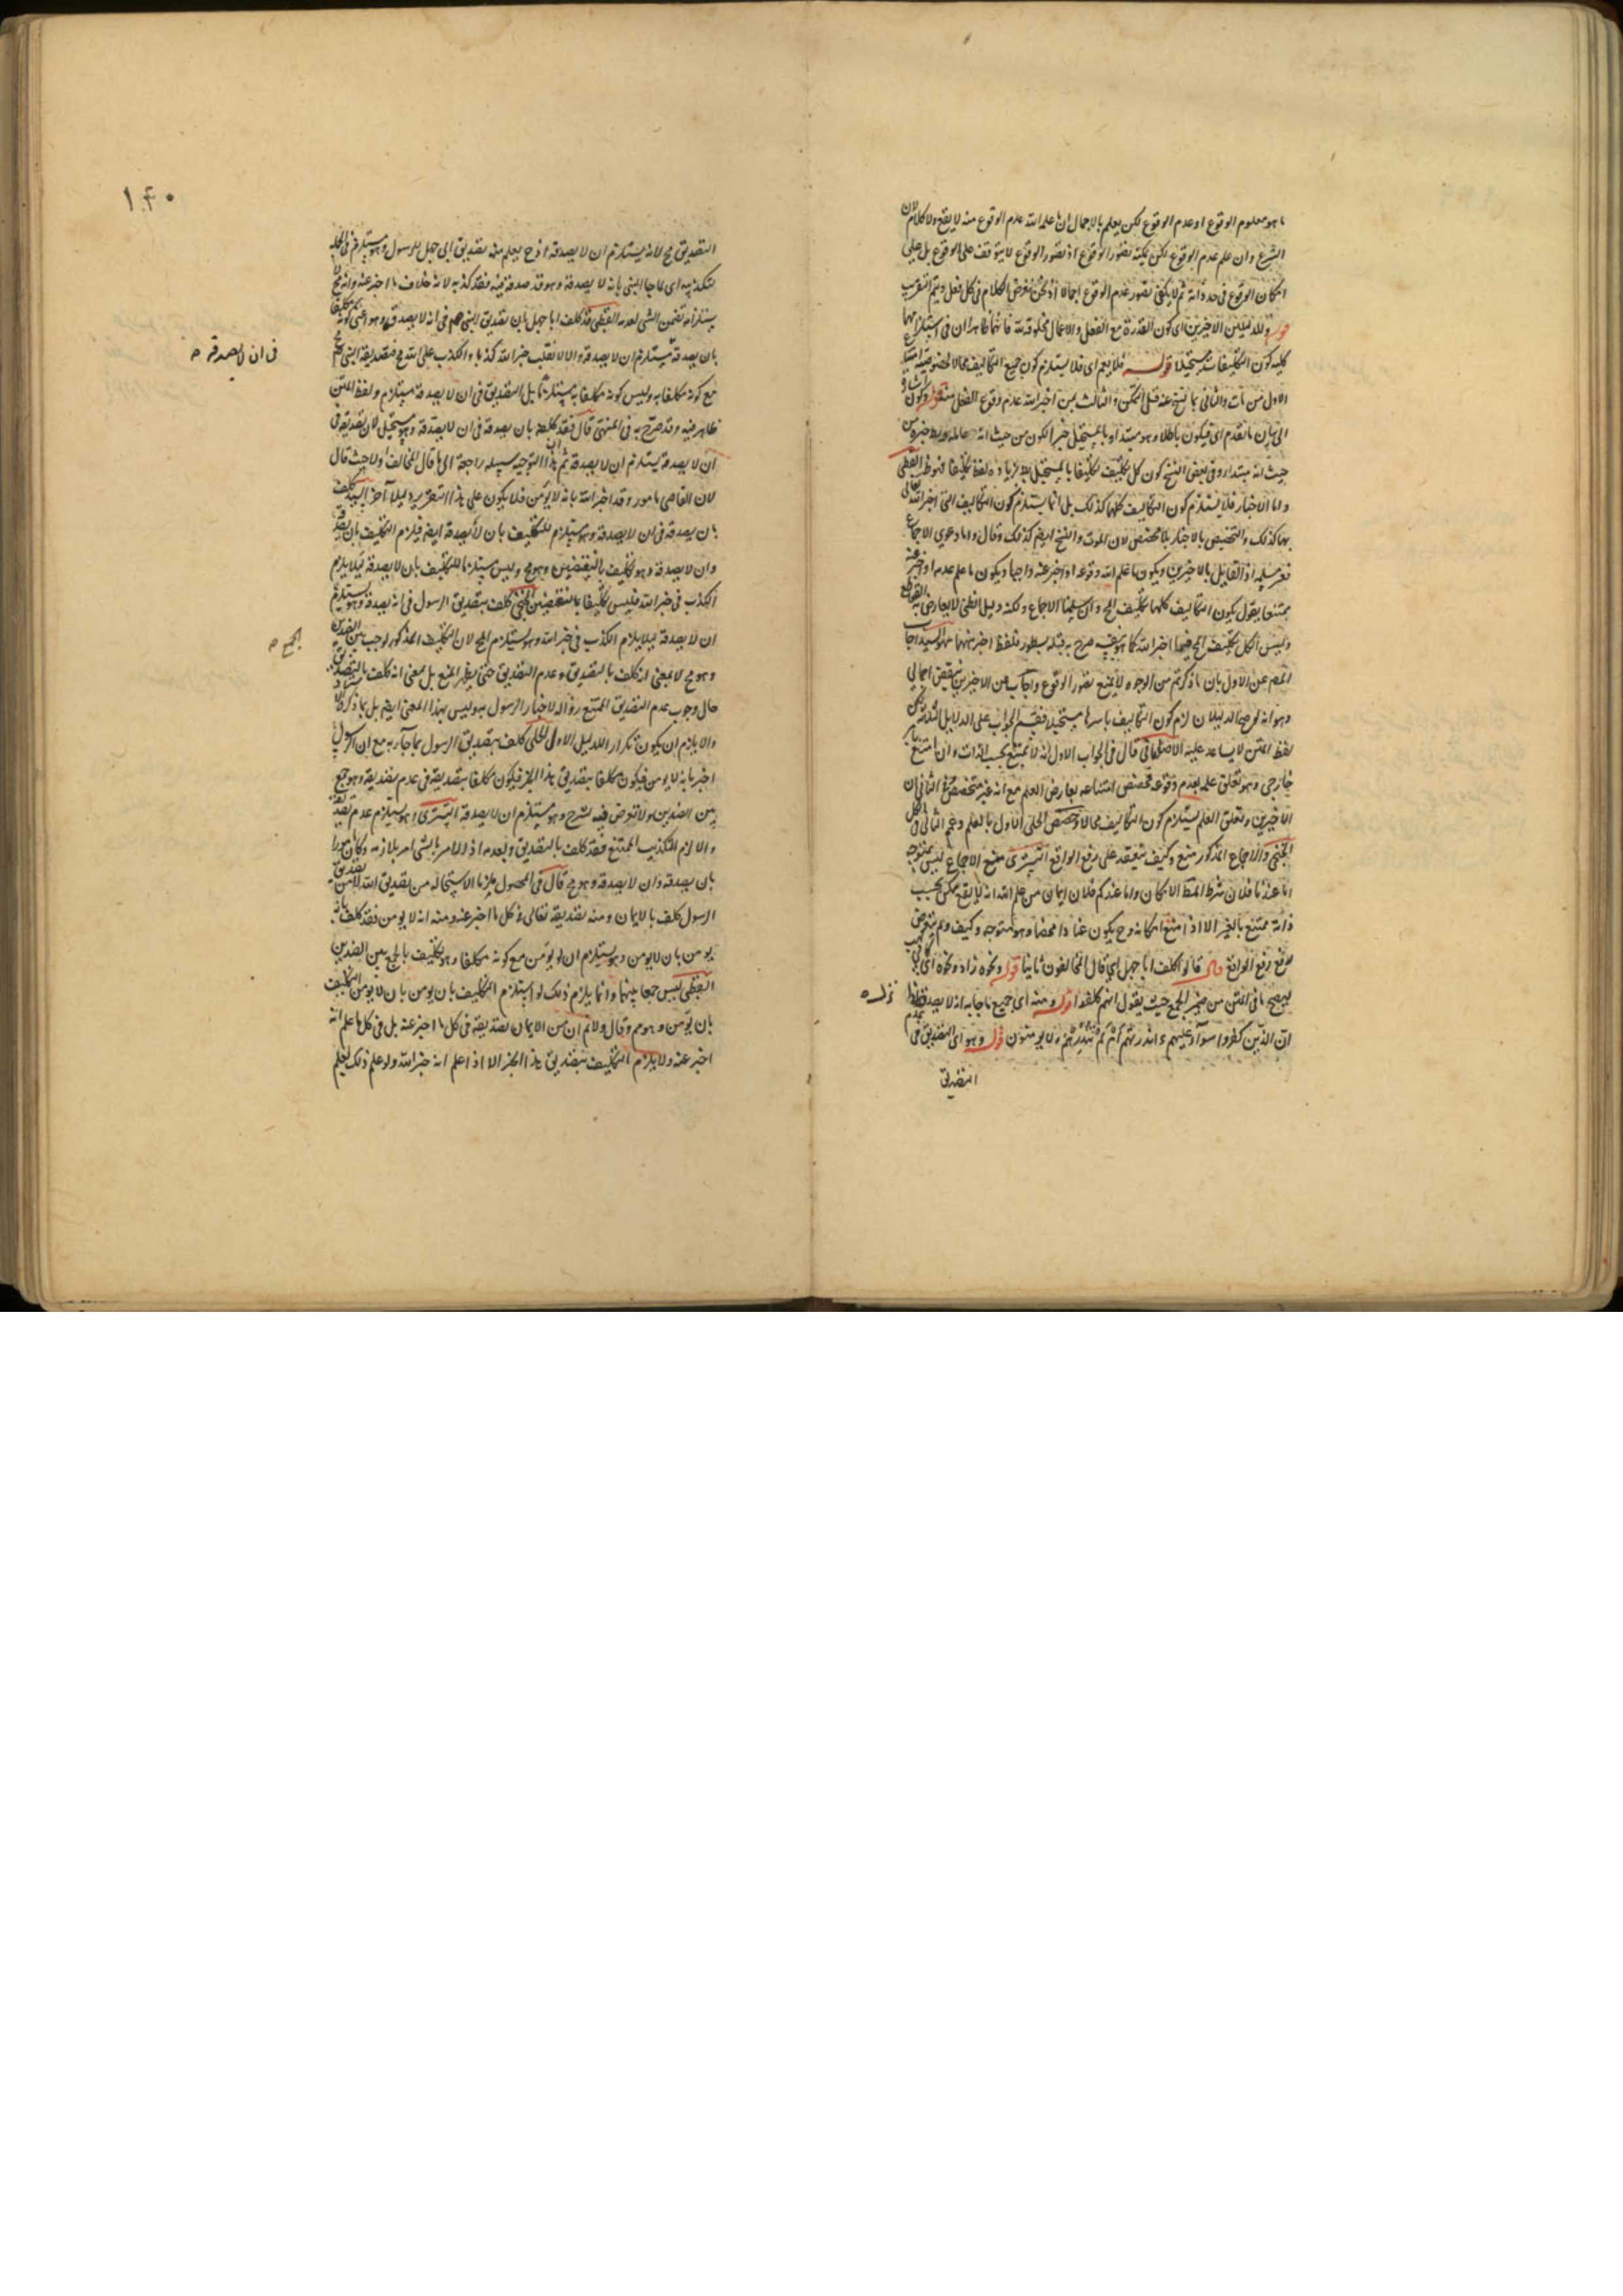 ما هو معلوم الوقوع او عدم الوقوع لكن يعلم بالاجمال ان ما علم الله عدم الوقوع منه لا يقع ولا كلام لان
الشرع وان علم عدم الوقوع لكن يمكنه تصور الوقوع اذ تصور الوقوع لا يتوقف على الوقوع بل على
امكان الوقوع في حد ذاته ثم لا يكفي تصور عدم الوقوع اجمالا اذ نحن نفرض الكلام في كل فعل ويتم التقريب
قوله وللدليلين الاخيرين اي كون القدرة مع الفعل والاعمال مخلوقة لله فانهما ظاهران في استلزامهما
كلية كون التكليفات مستحيلا قوله فلا يعم اي فلا يستلزم كون جميع التكاليف محالا لخصوصية
الاول من مات والثاني بما نسخ عنه قبل التمكن والثالث بمن اخبر الله عدم وقوع الفعل منه قوله وكون
الى بان ما تقدم اي فيكون باطلا وهو مبتدا وبالمستحيل خبر الكون من حيث انه عامله وربط خبره من
حيث انه مبتدا وفي بعض النسخ كون كل تكليف تكليفا بالمستحيل بزيادة لفظ تكليفا فهو ظ القطبي
واما الاخبار فلا يستلزم كون التكاليف كلها كذلك بل انما يستلزم كون التكاليف التي اخبر الله تعالى
بها كذلك والتخصيص بالاخبار بلا مخصص لان الموت والنسخ ايضا كذلك وقال واما دعوى الاجماع
فغير مسلمة اذ القايل بالاخيرين ويكون ما علم الله وقوعه او اخبر عنه واجبا ويكون ما علم عدمه او اخبر عنه
ممتنعا يقول بكون التكاليف كلها تكليف المح وان سلمنا الاجماع ولكنه دليل ظني لا يعارض القواطع
وليس الكل تكليف المح فيما اخبر الله كما هو صرح به قبله بسطور فلفظ اخبر ههنا سهو السيد اجاب
المص عن الاول بان ما ذكرتم من الوجوه لا يمنع تصور الوقوع واجاب عن الاخيرين بنقيض اجمالي
وهو انه لو صح الدليلان لزم كون التكاليف باسرها مستحيلا فقسم الجواب على الدلايل الثلاثة لكن
لفظ المتن لا يساعد عليه الاصفهاني قال في الجواب الاول انه لا يمتنع بحسب الذات وان امتنع بامر
خارجي وهو تعلق علمه بعدم وقوعه فخصص امتناعه بعارض العلم مع انه غير متخصص في الثاني ان
الاخيرين وتعلق العلم يستلزم كون التكاليف محالا وخصص الحلي الاول بالعلم وعم الثاني في الكل
الخنجي والاجماع المذكور منع وكيف ينعقد على رفع الواقع التستري منع الاجماع ليس بمتوجه
اما عندنا فلان شرط المط الامكان واما عندكم فلان ايمان من علم الله انه لا يقع ممكن بحسب
ذاته ممتنع بالغير الا اذا منع امكانه وح يكون عنادا محضا وهو متوجه وكيف ولم يتعرض
لمنع رفع الواقع قال قالوا كلف ابا جهل اي قال المخالفون ثانيا قوله ونحوه زاد ونحوه اي كابي لهب
ليصح ما في المتن من ضمير الجمع حيث يقول انهم كلفوا قوله ومنه اي جميع ما جاء به انه لا يصدقه
ان الذين كفروا سوآء عليهم ءانذرتهم ام لم تنذرهم لا يومنون قوله وهو اي التصديق في
التصديق
١٤٠
التصديق مح لانه يستلزم ان لا يصدقه اذ ح يعلم منه تصديق ابي جهل للرسول وهو مستلزم في الجملة
لتكذيبه اي لما جا النبي بانه لا يصدقه وهو قد صدقه فيه فقد كذبه لانه خلاف ما اخبر عنه وانه مح
يستلزامه تضمن الشي لعدمه القطبي قد كلف ابا جهل بان تصديق النبي صم في انه لا يصدقه وهو اعني كونه مكلفا
بان يصدقه يستلزم ان لا يصدقه والا لانقلب خبر الله كذبا والكذب على الله مح فتصديقه النبي مح
مع كونه مكلفا به وليس كونه مكلفا به مستلزما بل التصديق في ان لا يصدقه مستلزم ولفظ المتن
ظاهر فيه وقد صرح به في المنتهى قال فقد كلفه بان يصدقه في ان لا يصدقه وهو مستحيل لان تصديقه في
ان لا يصدقه يستلزم ان لا يصدقه ثم هذا التوجيه سبيله راجعة الى ما قال المخالف اولا حيث قال
لان العاصي مامور وقد اخبر الله بانه لا يومن فلا يكون على هذا التقرير دليلا آخر السيد كلف
بان يصدقه في ان لا يصدقه وهو مستلزم للتكليف بان لا يصدقه ايضا فيلزم التكليف بان يصدقه
وان لا يصدقه وهو تكليف بالنقيضين وهو مح وليس مستلزما للتكليف بان لا يصدقه ليلا يلزم
الكذب في خبر الله فليس تكليفا بالنقيضين الخنجي كلف بتصديق الرسول في انه يصدقه وهو يستلزم
ان لا يصدقه ليلا يلزم الكذب في خبر الله وهو مستلزم المح لان التكليف المذكور لوجب بين الضدين
وهو مح لا بمعنى انه كلف بالتصديق وعدم التصديق حتى يظهر المنع بل بمعنى انه كلف بالتصديق
حال وجوب عدم التصديق الممتنع زواله لاخبار الرسول به وليس بهذا المعنى ايضا بل بما ذكرنا
والا يلزم ان يكون تكرار الدليل الاول الحلي كلف بتصديق الرسول بما جآء به مع ان الرسول
اخبر بانه لا يومن فيكون مكلفا بتصديق هذا الخبر فيكون مكلفا بتصديقه في عدم تصديقه وهو جمع
بين الضدين ولا تعرض فيه لشرح وهو مستلزم ان لا يصدقه التستري وهو يستلزم عدم تصديقه
والا لزم التكذيب الممتنع فقد كلف بالتصديق وبعدمه اذ الامر بالشي امر بلازمه وكان مامورا
بان يصدقه وان لا يصدقه وهو مح قال في المحصول ملزما الاستحالة من تصديق الله لا من تصديق
الرسول كلف بالايمان ومنه تصديقه تعالى في كل ما اخبر عنه ومنه انه لا يومن فقد كلف بانه
يومن بان لا يومن وهو يستلزم ان لا يومن مع كونه مكلفا وهو تكليف بالجمع بين الضدين
القطبي ليس جمعا بينهما وانما يلزم ذلك لو استلزم التكليف بان يومن بان لا يومن التكليف
بان يومن وهو مم وقال ولانم ان من الايمان تصديقه في كل ما اخبر عنه بل في كل ما علم انه
اخبر عنه ولا يلزم التكليف بتصديق هذا الخبر الا اذا علم انه خبر الله ولو علم ذلك لعلم
في ان لا يصدقه
الجمع